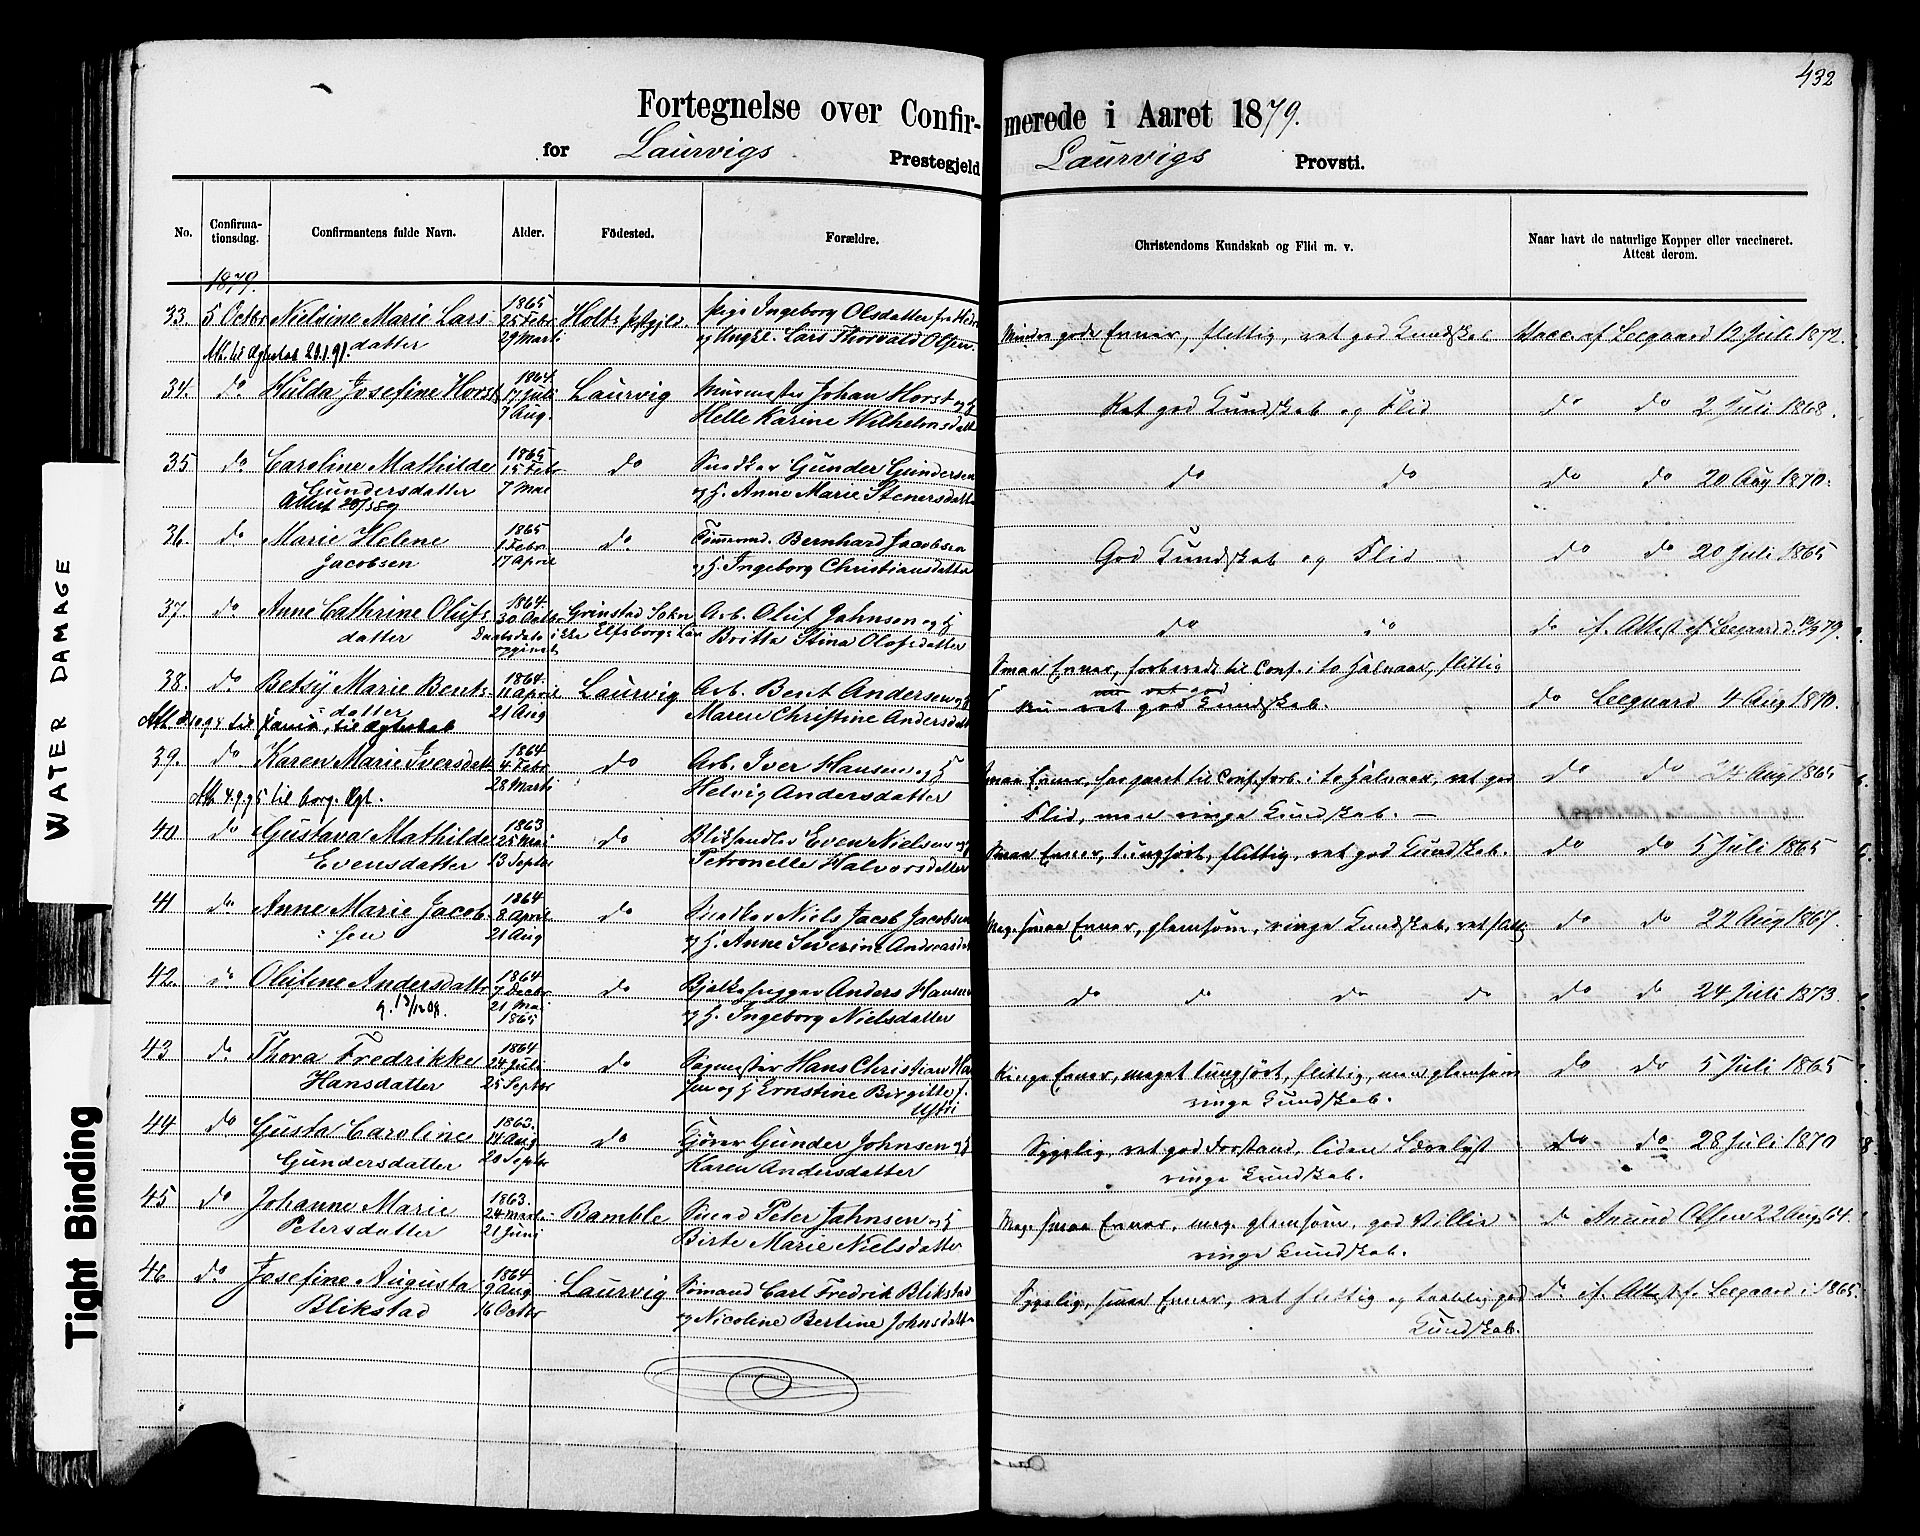 432
Fortegnelse over Confir- merede i Aaret 1879.
for Laurvigs Prestegjeld Laurvigs Provsti.
No. Confirma-tionsdag. Confirmantens fulde Navn. Alder. Födested. Forældre. Christendoms Kundskab og Flid m. v. Naar havt de naturlige Kopper eller vaccineret. Attest derom.
1879.
33. 5 Octbr Nielsine Marie Lars- 1865 25 Febr Holts Ingeborg Olsdatter Mindre gode Evner, flittig, ret god Kundskab Vacc. af Leegaard 12 Juli 1872.
datter og Ungk. Lars Thorvald Olsen
34. do Hulda Josefine Horst 1864 17 Juli 7 Aug. Laurvig Murmester Johan Horst og H. Ret god Kundskab og Flid do do 2 Juli 1868.
Helle Karine Wilhelmsdatt
35 do Caroline Mathilde 1865 15 Febr 7 Mai do Snedker Gunder Gundersen do do do do 20 Aug 1870.
Gundersdatter og H. Anne Marie Stenersdatte
36. do Marie Helene 1865 1 Febr 17 April do Tømmermd. Bernhard Jacobsen God Kundskab og Flid do do 20 Juli 1865
Jacobsen og H. Ingeborg Christiansdatter
37. do Anne Cathrine Olufs- 1864. 30 Octbr Grinstad Sokn Arb. Oluf Jahnsen og H do do do if. Attest af Leegaard d. 13/9 79.
datter Daabsdato ikke opgivet Elfsborgs Län Britta Stina Olofsdatter
38. do Betsy Marie Bents- 1864. 11 April 21 Aug Laurvig Arb. Bent Andersen og H Smaa Evner, forberedt til Conf. i to Halvaar, flittig
datter Maren Christine Andersdatt ret god Kundskab. do Leegaard 4 Aug 1870.
til Ægteskab
39. do Karen Marie Iversdatt 1864 4 Febr 28 Marts do Arb. Iver Hansen og H Smaa Evner, forb. i to Halvaar, ret god do do 24 Aug 1865
Att. 4.9.95 til borg. Vgl. Helvig Andersdatter Flid, men ringe Kundskab. —
40 do Gustava Mathilde 1863 25 Mai 13 Septbr do Even Nielsen og H Smaa Evner, tunghørt, flittig, ret god Kundskab. do do 5 Juli 1865
Evensdatter Petronelle Halvorsdatter
41 do Anne Marie Jacob- 1864 8 April 21 Aug do Snedker Niels Jacob Jacobsen Meg. smaa Evner, glemsom, ringe Kundskab, ret flittig do do 22 Aug 1867.
sen og H. Anne Severine Andreasdat
42. do Olufine Andersdattr 1864 7 Decbr 21 Mai 1865 do Bjelkehugger Anders Hansen do do do do do do 24 Juli 1873
og H. Ingeborg Nielsdatter
43 do Thora Fredrikke 1864 24 Juli 25 Septbr do Sagmester Hans Christian Han Ringe Evner, meget tunghørt, flittig, men glemsom do do 5 Juli 1865
Hansdatter sen og H Ernstine Birgitte f. ringe Kundskab.
44 do Gusta Caroline 1863. 14 Aug 20 Septbr do Kjører Gunder Johnsen og H Sygelig, ret god Forstand, liden Lærelyst do do 28 Juli 1870
Gundersdatter Karen Andersdatter ringe Kundskab.
45 do Johanne Marie 1863. 24 Marts 21 Juni Bamble Smed Peter Jahnsen og H Meg. smaa Evner, meg. glemsom, god Villie do Amund Olsen 22 Aug 64.
Petersdatter Birte Marie Nielsdatter ringe Kundskab.
46 do Josefine Augusta 1864 9 Aug 16 Octbr Laurvig Sømand Carl Fredrik Blikstad Sygelig, smaa Evner, ret flittig og taalelig god do if. Attest f. Leegaard i 1865.
Blikstad og Nicoline Bertine Johnsdatter Kundskab.
WATER DAMAGE
Tight Binding